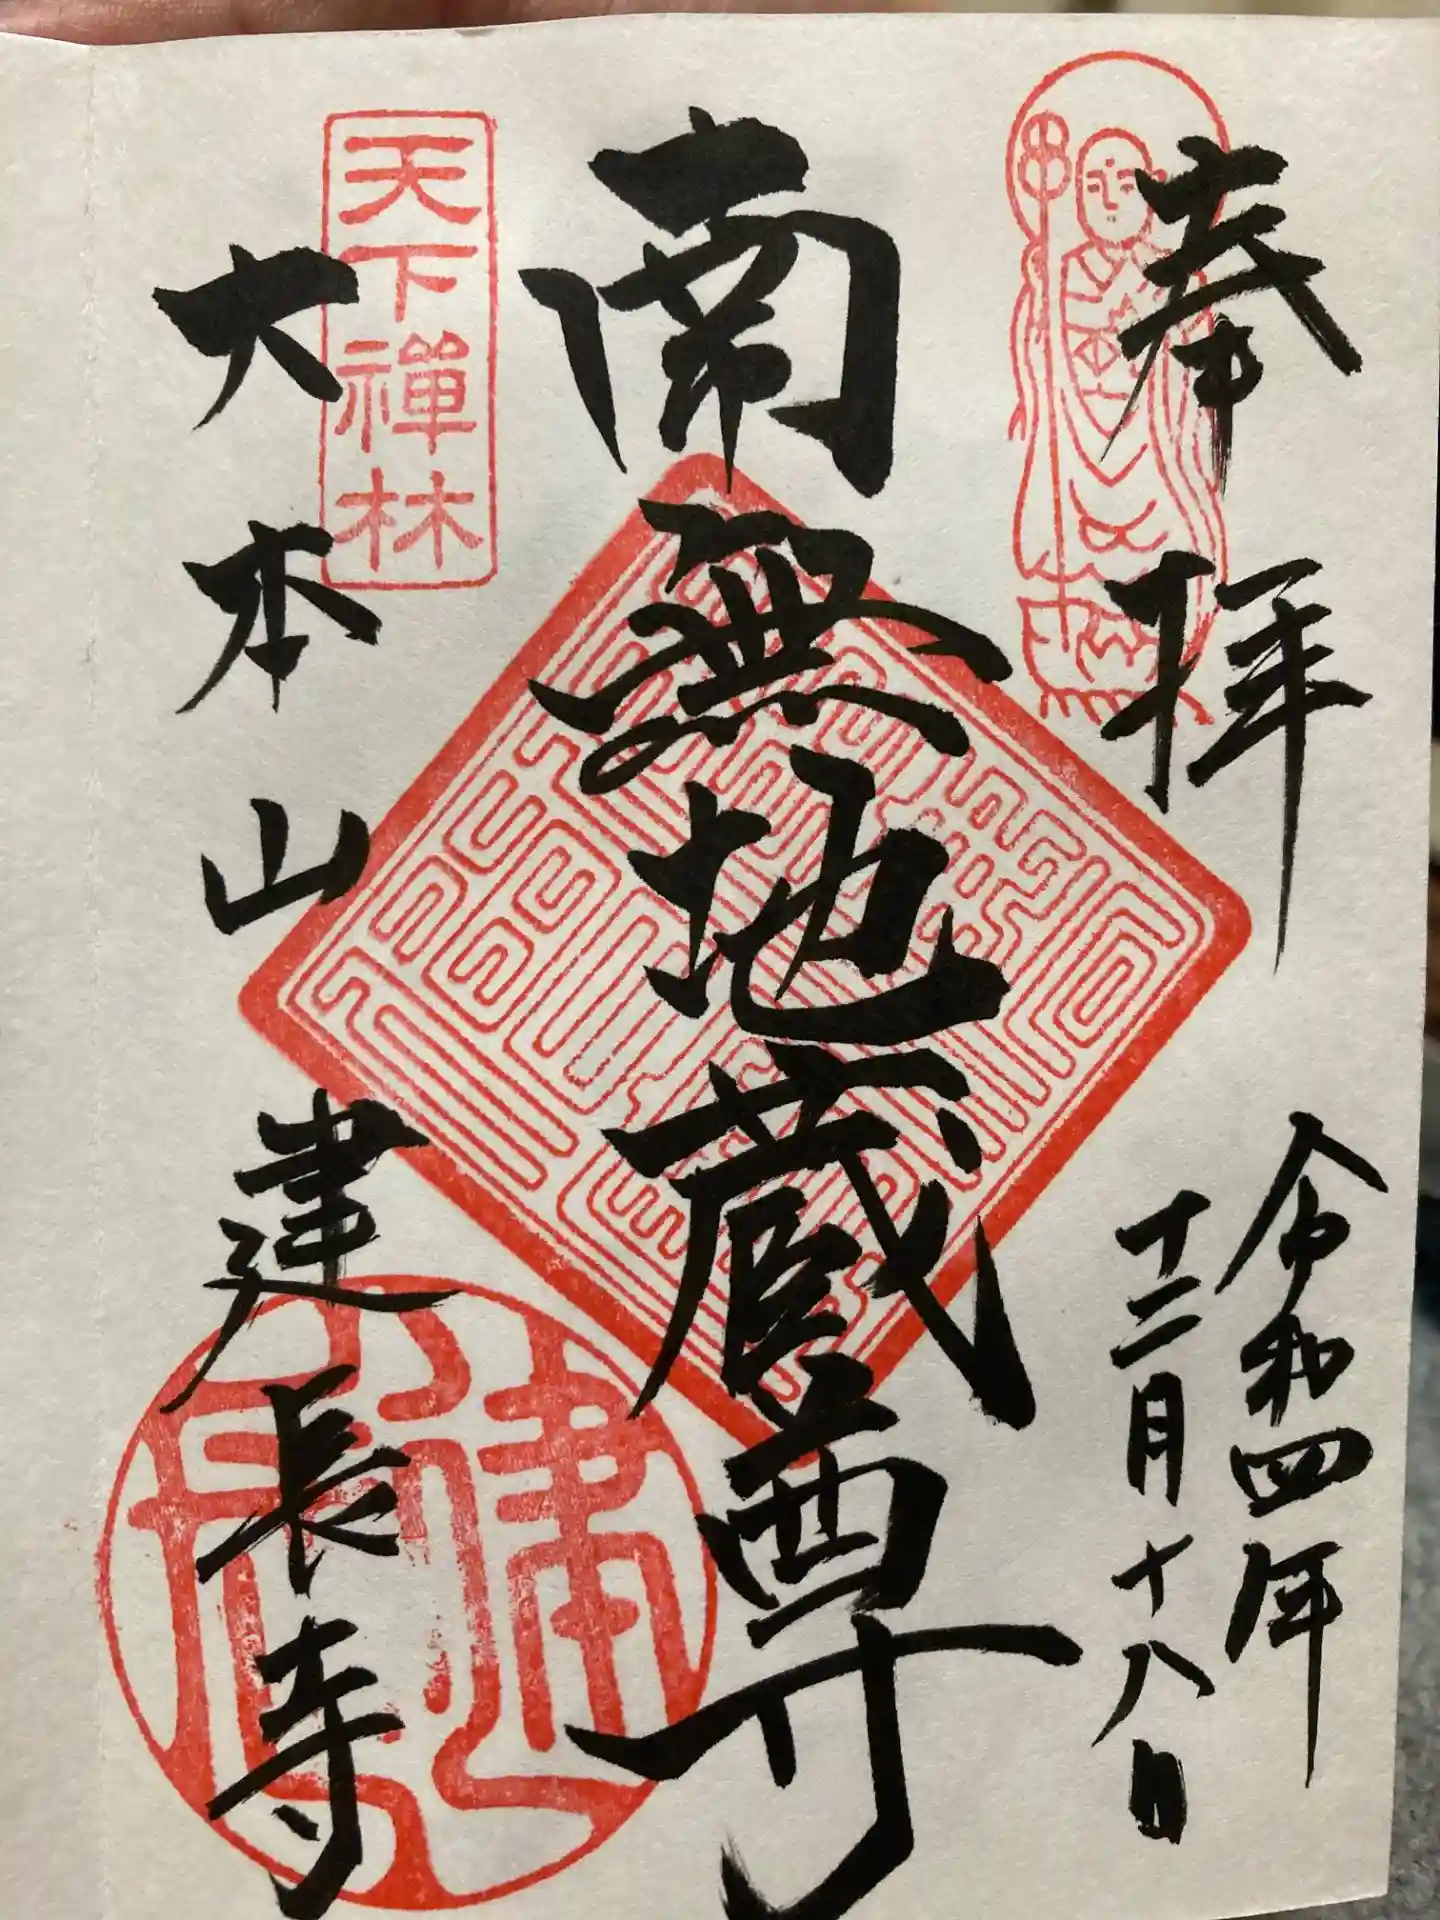 奉拝
令和四年
十二月十八日
南無地蔵尊
天下禅林
大本山建長寺